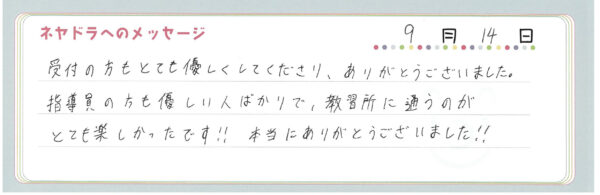 ネヤドラへのメッセージ
9月14日
受付の方もとても優しくしてくださり、ありがとうございました。
指導員の方も優しい人ばかりで、教習所に通うのが
とても楽しかったです!! 本当にありがとうございました!!